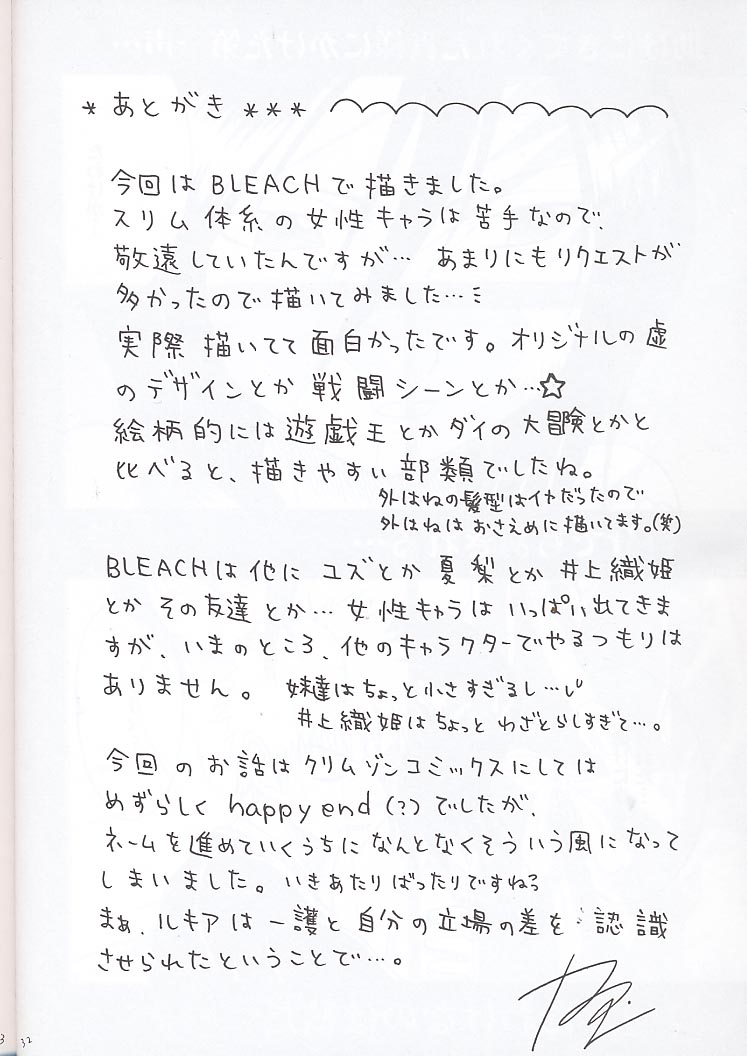 * あとがき ***
今回は BLEACHで描きました。
スリム体系の女性キャラは苦手なので、
敬遠していたんですが… あまりにもリクエストが
多かったので描いてみました…
実際描いてて面白かったです。オリジナルの虚
のデザインとか戦闘シーンとか…☆
絵柄的には遊戯王とかダイの大冒険とかと
比べると、描きやすい部類でしたね。
外はねの髪型はイヤだったので
外はねはおさえめに描いてます。(笑)
BLEACHは他にユズとか夏梨とか井上織姫
とかその友達とか… 女性キャラはいっぱい出てきま
すが、いまのところ、他のキャラクターでやるつもりは
ありません。 妹達はちょっと小さすぎるし…
井上織姫はちょっとわざとらしすぎて…。
今回のお話はクリムゾンコミックスにしては
めずらしく happy end (?) でしたが、
ネームを進めていくうちになんとなくそういう風になって
しまいました。いきあたりばったりですね
まぁ、ルキアは一護と自分の立場の差を認識
させられたということで…。
32